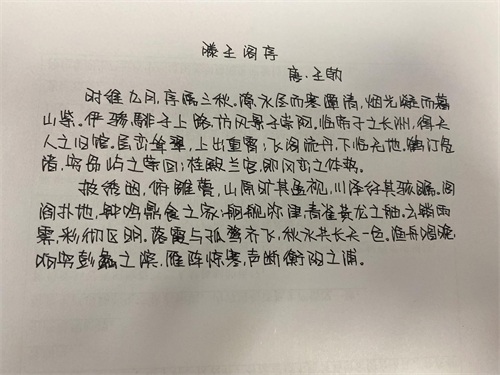 滕王阁序
唐·王勃
时维九月，序属三秋。潦水尽而寒潭清，烟光凝而暮
山紫。俨骖騑于上路，访风景于崇阿。临帝子之长洲，得天
人之旧馆。层峦耸翠，上出重霄；飞阁流丹，下临无地。鹤汀凫
渚，穷岛屿之萦回；桂殿兰宫，即冈峦之体势。
披绣闼，俯雕甍，山原旷其盈视，川泽纡其骇瞩。闾
阎扑地，钟鸣鼎食之家；舸舰弥津，青雀黄龙之舳。云销雨
霁，彩彻区明。落霞与孤鹜齐飞，秋水共长天一色。渔舟唱晚，
响穷彭蠡之滨，雁阵惊寒，声断衡阳之浦。